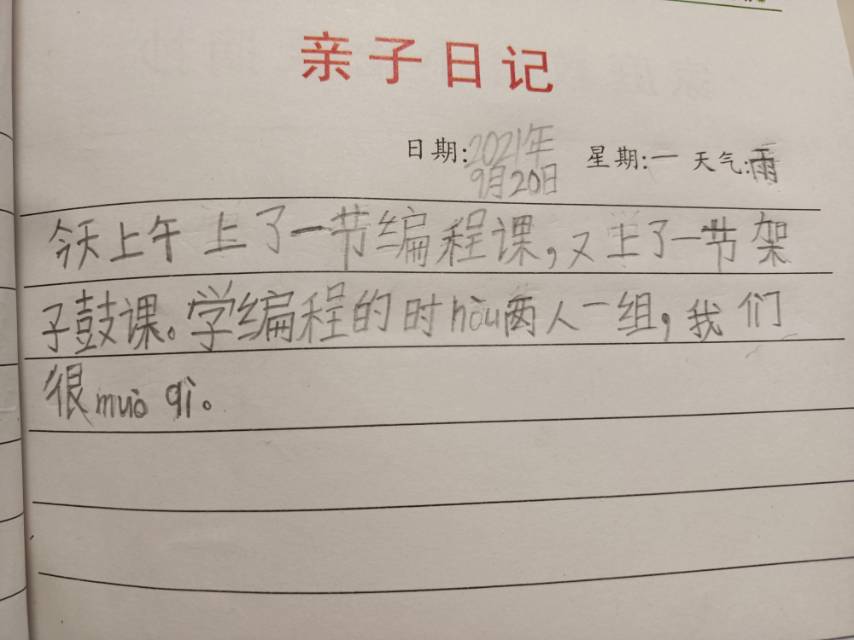 亲子日记
日期:2021年 星期:一 天气:雨
9月20日
今天上午上了一节编程课,又上了一节架
子鼓课。学编程的时hòu两人一组,我们
很muò qì。